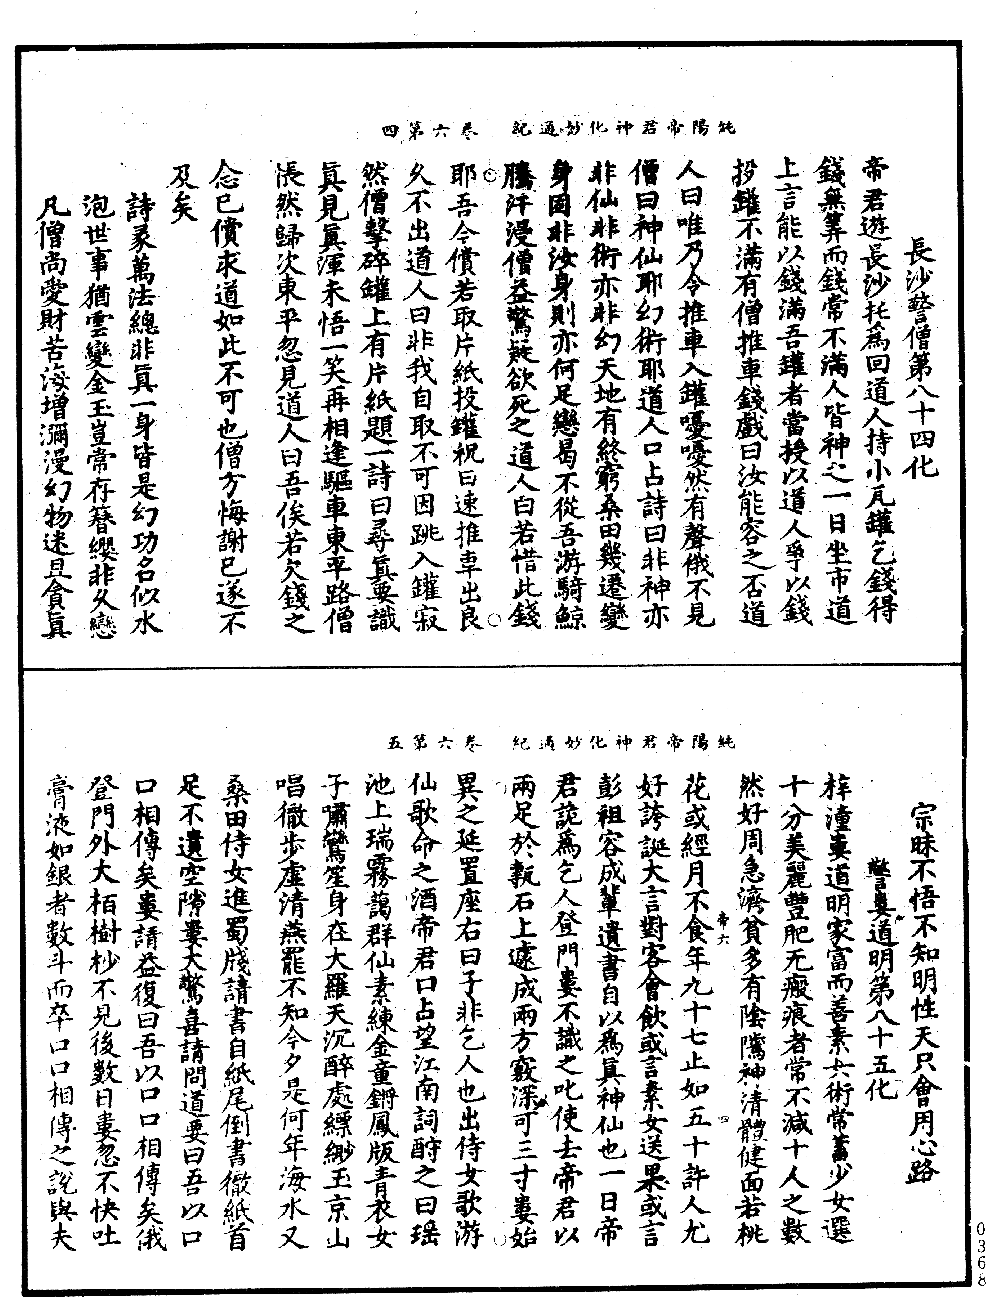 純陽帝君神化妙通紀　卷六第四
長沙警僧第八十四化
帝君遊長沙托為回道人持小瓦罐乞錢得
錢無筭而錢常不滿人皆神之一日坐市道
上言能以錢滿吾罐者當授以道人爭以錢
投罐不滿有僧推車錢戲曰汝能容之否道
人曰唯乃令推車入罐嘎嘎然有聲俄不見
僧曰神仙耶幻術耶道人口占詩曰非神亦
非仙非術亦非幻天地有終窮桑田幾遷變
身固非汝身財亦何足戀曷不從吾游騎鯨
騰汗漫僧益驚疑欲死之道人曰若惜此錢
耶吾今償若取片紙投罐祝曰速推車出良
久不出道人曰非我自取不可因跳入罐寂
然僧擊碎罐上有片紙題一詩曰尋真要識
真見真渾未悟一笑再相逢驅車東平路僧
悵然歸次東平忽見道人曰吾俟若欠錢之
念已償求道如此不可也僧方悔謝已遂不
及矣
詩彖萬法總非真一身皆是幻功名似水
泡世事猶雲變金玉豈常存簪纓非久戀
凡僧尚愛財苦海增瀰漫幻物迷且貪真
純陽帝君神化妙通紀　卷六第五
宗昧不悟不知明性天只會用心路
警婁道明第八十五化
梓潼婁道明家富而善素女術常蓄少女選
十分美麗豐肥无瘢痕者常不減十人之數
然好周急濟貧多有陰隲神清體健面若桃
花或經月不食年九十七止如五十許人尤
好誇誕大言對客會飲或言素女送果或言
彭祖容成輩遺書自以為真神仙也一日帝
君詭為乞人登門婁不識之叱使去帝君以
兩足於㪽石上遽成兩方竅深可三寸婁始
異之延置座右曰子非乞人也出侍女歌游
仙歌命之酒帝君口占望江南詞酧之曰瑶
池上瑞霧藹群仙素練金童鏘鳳版青衣女
子嘯鸞笙身在大羅天沉醉處縹緲玉京山
唱徹步虛清燕罷不知今夕是何年海水又
桑田侍女進蜀牋請書自紙尾倒書徹紙首
足不遺空隙婁大驚喜請問道要曰吾以口
口相傳矣婁請益復曰吾以口口相傳矣俄
登門外大栢樹杪不見後數日婁忽不快吐
膏液如銀者數斗而卒口口相傳之說與夫
帝六
四
0368